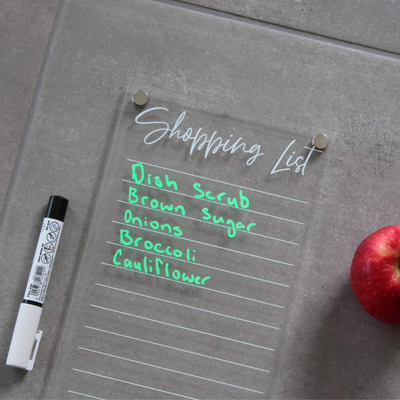 Shopping List
Dish Scrub
Brown Sugar
Onions
Broccoli
Cauliflower